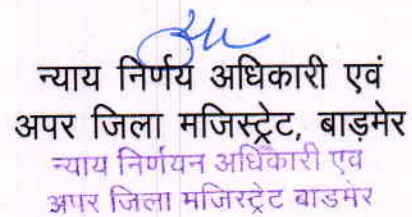 न्याय निर्णय अधिकारी एवं
अपर जिला मजिस्ट्रेट, बाड़मेर
न्याय निर्णयन अधिकारी एवं
अपर जिला मजिस्ट्रेट बाडमेर